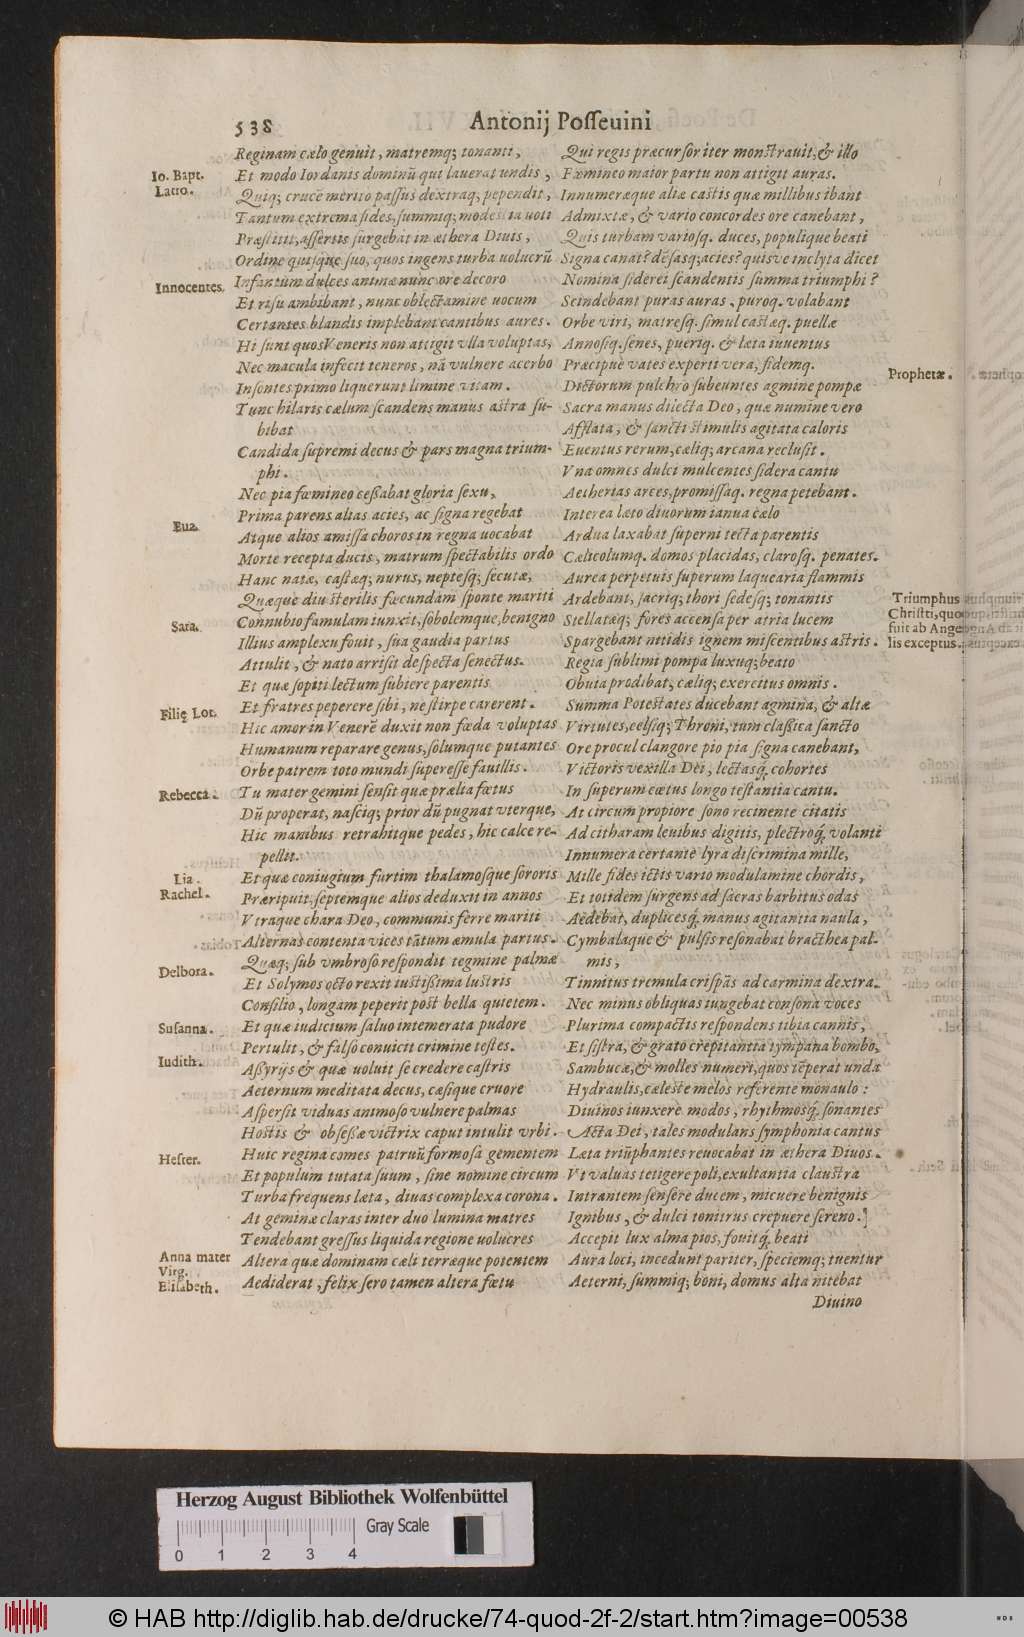 538
Antonij Posseuini
Reginam cælo genuit, matremq; tonanti,
Io. Bapt.
Et modo Iordanis dominũ qui lauerat undis,
Latro.
Quiq; crucẽ merito passus dextraq; pependit,
Tantum extrema fides, summiq; modestia uoti
Præstitit, assertis surgebãt in æthera Diuis,
Ordine quisque suo, quos ingens turba uolucrũ
Innocentes.
Infantùm dulces animæ nunc ore decoro
Et risu ambibant, nunc oblectamine uocum
Certantes blandis implebant cantibus aures.
Hi sunt quos Veneris non attigit vlla voluptas,
Nec macula infecit teneros, nã vulnere acerbo
Insontes primo liquerunt limine vitam.
Tunc hilaris cælum scandens manus astra su-
bibat
Candida supremi decus & pars magna trium-
phi.
Nec pia fœmineo cessabat gloria sexu,
Eua.
Prima parens alias acies, ac signa regebat
Atque alios amissa choros in regna uocabat
Morte recepta ducis, matrum spectabilis ordo
Hanc natæ, castæq; nurus, neptesq; secutæ,
Quæque diu sterilis fœcundam sponte mariti
Sara.
Connubio famulam iunxit, sobolemque, benigno
Illius amplexu fouit, sua gaudia partus
Attulit, & nato arrisit despecta senectus.
Et quæ sopiti lectum subiere parentis
Filię Lot.
Et fratres peperere sibi, ne stirpe carerent.
Hic amor in Venerẽ duxit non fœda voluptas
Humanum reparare genus, solumque putantes
Orbe patrem toto mundi superesse fauillis.
Rebecca.
Tu mater gemini sensit quæ prælia fœtus
Dũ properat, nasciq; prior dũ pugnat vterque,
Hic manibus retrahitque pedes, hic calce re-
pellit.
Lia.
Et quæ coniugium furtim thalamosque sororis
Rachel.
Præripuit, septemque alios deduxit in annos
Vtraque chara Deo, communis ferre mariti
Alternas contenta vices tãtum æmula partus.
Quæq; sub vmbroso respondit tegmine palmæ
Delbora.
Et Solymos octo rexit iustissima lustris
Consilio, longam peperit post bella quietem.
Susanna.
Et quæ iudicium saluo intemerata pudore
Pertulit, & falso conuicit crimine testes.
Iudith.
Assyrijs & quæ uoluit se credere castris
Aeternum meditata decus, cæsique cruore
Aspersit viduas animoso vulnere palmas
Hostis & obsessæ victrix caput intulit vrbi.
Hester.
Huic regina comes patruũ formosa gementem
Et populum tutata suum, sine nomine circum
Turba frequens læta, diuas complexa corona.
At geminæ claras inter duo lumina matres
Tendebant gressus liquida regione uolucres
Anna mater
Virg.
Altera quæ dominam cæli terræque potentem
Elisabeth.
Aediderat, felix sero tamen altera fœtu
Qui regis præcursor iter monstrauit, & illo
Fœmineo maior partu non attigit auras.
Innumeræque aliæ castis quæ millibus ibant
Admixtæ, & vario concordes ore canebant,
Quis turbam variosq. duces, populique beati
Signa canat? dẽsasq; acies? quisve inclyta dicet
Nomina siderei scandentis summa triumphi?
Scindebant puras auras, puroq. volabant
Orbe viri, matresq. simul castæq. puellæ
Annosiq. senes, pueriq. & læta iuuentus
Præcipuè vates experti vera, fidemq.
Prophetæ.
Dictorum pulchro subeuntes agmine pompæ
Sacra manus dilecta Deo, quæ numine vero
Afflata, & sancti stimulis agitata caloris
Euentus rerum, cæliq; arcana reclusit.
Vna omnes dulci mulcentes sidera cantu
Aetherias arces, promissaq. regna petebant.
Interea læto diuorum ianua cælo
Ardua laxabat superni tecta parentis
Cælicolumq. domos placidas, clarosq. penates.
Aurea perpetuis superum laquearia flammis
Triumphus
Christi, quo
fuit ab Ange
lis exceptus.
Ardebant, sacriq; thori sedesq; tonantis
Stellatæq; fores accensa per atria lucem
Spargebant nitidis ignem miscentibus astris.
Regia sublimi pompa luxuq; beato
Obuia prodibat, cæliq; exercitus omnis.
Summa Potestates ducebant agmina, & altæ
Virtutes, celsiq; Throni, tum classica sancto
Ore procul clangore pio pia signa canebant,
Victoris vexilla Dei, lectasq́; cohortes
In superum cœtus longo testantia cantu.
At circum propiore sono recinente citatis
Ad citharam leuibus digitis, plectroq́; volanti
Innumera certante lyra discrimina mille,
Mille fides ictis vario modulamine chordis,
Et totidem surgens ad sacras barbitus odas
Aedebat, duplicesq́; manus agitantia naula,
Cymbalaque & pulsis resonabat bracthea pal-
mis,
Tinnitus tremula crispãs ad carmina dextra.
Nec minus obliquas iungebat consona voces
Plurima compactis respondens tibia cannis,
Et sistra, & grato crepitantia tympana bombo,
Sambucæ, & molles numeri, quos tẽperat unda
Hydraulis, cæleste melos referente monaulo:
Diuinos iunxere modos, rhythmosq́; sonantes
Acta Dei, tales modulans symphonia cantus
Læta triũphantes reuocabat in æthera Diuos.
Vt valuas tetigere poli, exultantia claustra
Intrantem sensere ducem, micuere benignis
Ignibus, & dulci tonitrus crepuere sereno.
Accepit lux alma pios, fouitq́; beati
Aura loci, incedunt pariter, speciemq; tuentur
Aeterni, summiq; boni, domus alta nitebat
Diuino
Herzog August Bibliothek Wolfenbüttel
Gray Scale
0 1 2 3 4
© HAB http://diglib.hab.de/drucke/74-quod-2f-2/start.htm?image=00538